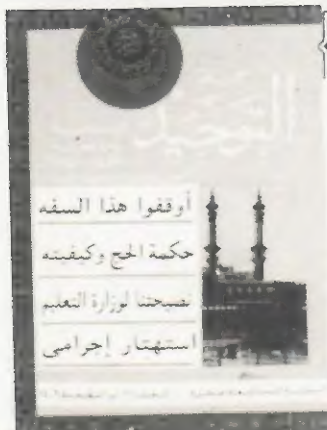 التوحيد
أوقفوا هذا السفه
حكمة الحج وكيفيته
نصيحتنا لوزارة التعليم
استهتار إجرامى